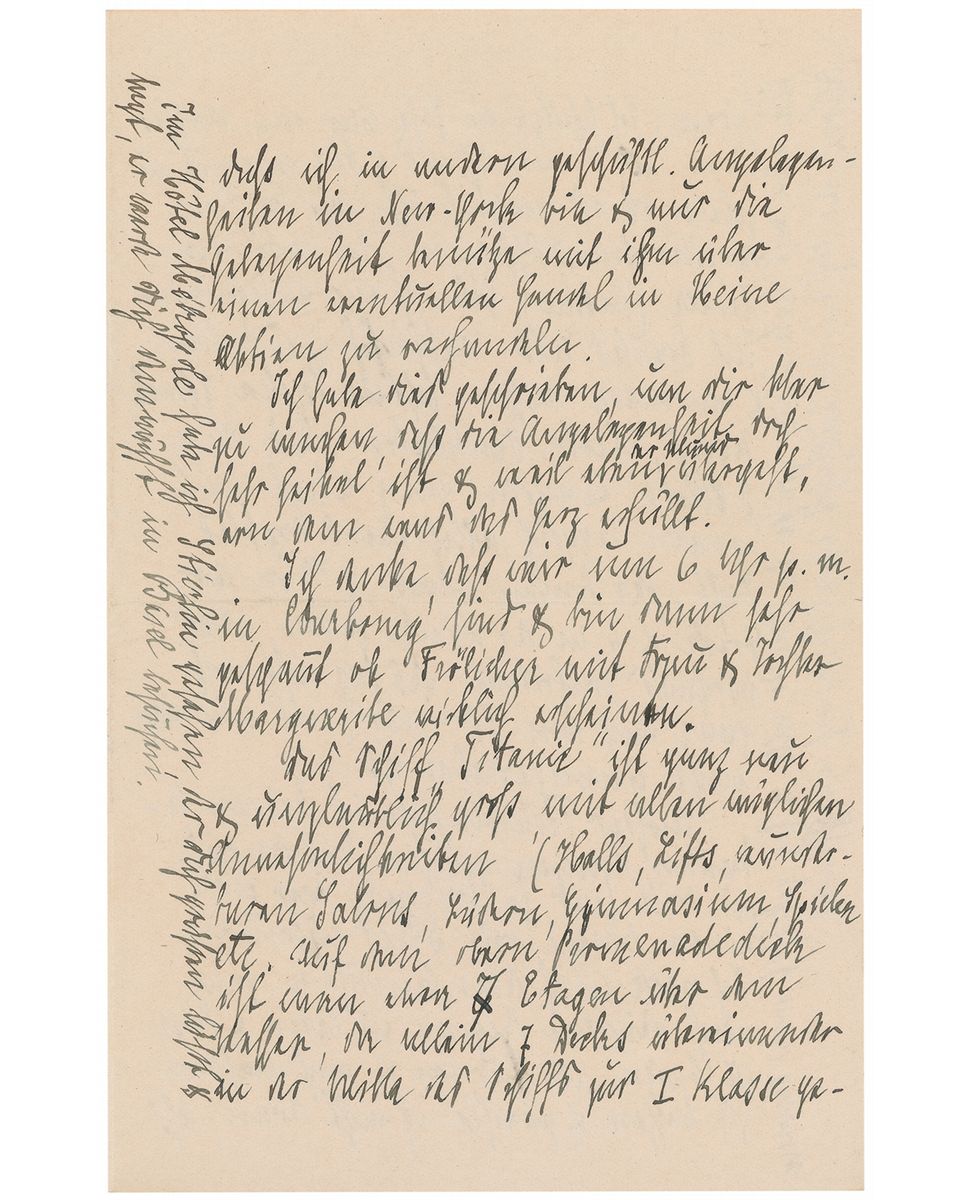 dass ich in andern geschäftl. Angelegen-
heiten in New-York bin & nur die
Gelegenheit benütze mit ihm über
einen eventuellen Handel in Heine
Aktien zu verhandeln.
Ich habe dies geschrieben, um dir klar
zu machen, dass die Angelegenheit doch
sehr heikel ist & weil eben der Mund übergeht,
von dem was das Herz erfüllt.
Ich denke, dass wir um 6 Uhr p. m.
in Cherbourg sind & bin dann sehr
gespannt ob Frölicher mit Frau & Tochter
Marguerite wirklich erscheinen.
Das Schiff „Titanic" ist ganz neu
& unglaublich gross mit allen möglichen
Annehmlichkeiten (Halls, Lifts, wunder-
baren Salons, Bädern, Gymnasium, Spielen
etc. Auf dem obern Promenadedeck
ist man etwa 7 Etagen über dem
Wasser, da allein 7 Decks übereinander
in der Mitte des Schiffs zur I Klasse ge-
im Hôtel Metropole habe ich Stierlin gesehen, der dich grüssen lässt &
sagt, er werde dich demnächst in Basel besuchen.